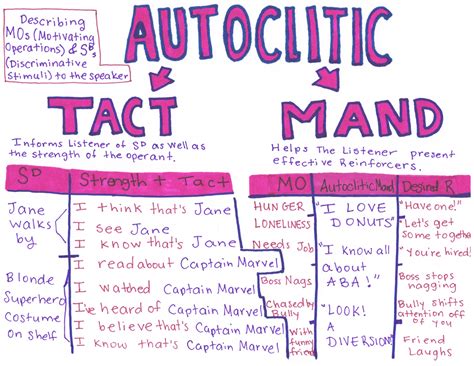 Describing
MOs (Motivating
Operations) & SDs
(Discriminative
Stimuli) to the speaker
AUTOCLITIC
TACT
Informs Listener of SD as well as
the strength of the operant.
SD
Strength + Tact
Jane
walks
by
I think that's Jane
I see Jane
I know that's Jane
Blonde
Superhero
Costume
On Shelf
I read about Captain Marvel
I watched Captain Marvel
I've heard of Captain Marvel
I believe that's Captain Marvel
I know that's Captain Marvel
MAND
Helps The Listener present
effective Reinforcers.
MO
Autoclitic Mand
Desired R
HUNGER
LONELINESS
Needs Job
Boss Nags
Chased by
Bully
With
funny
friend
"I LOVE
DONUTS"
"I know all
about
ABA!"
"LOOK!
A
DIVERSION"
"Have one!"
"Let's get
some together
"You're hired!"
Boss stops
nagging
Bully shifts
attention off
of you
Friend
Laughs